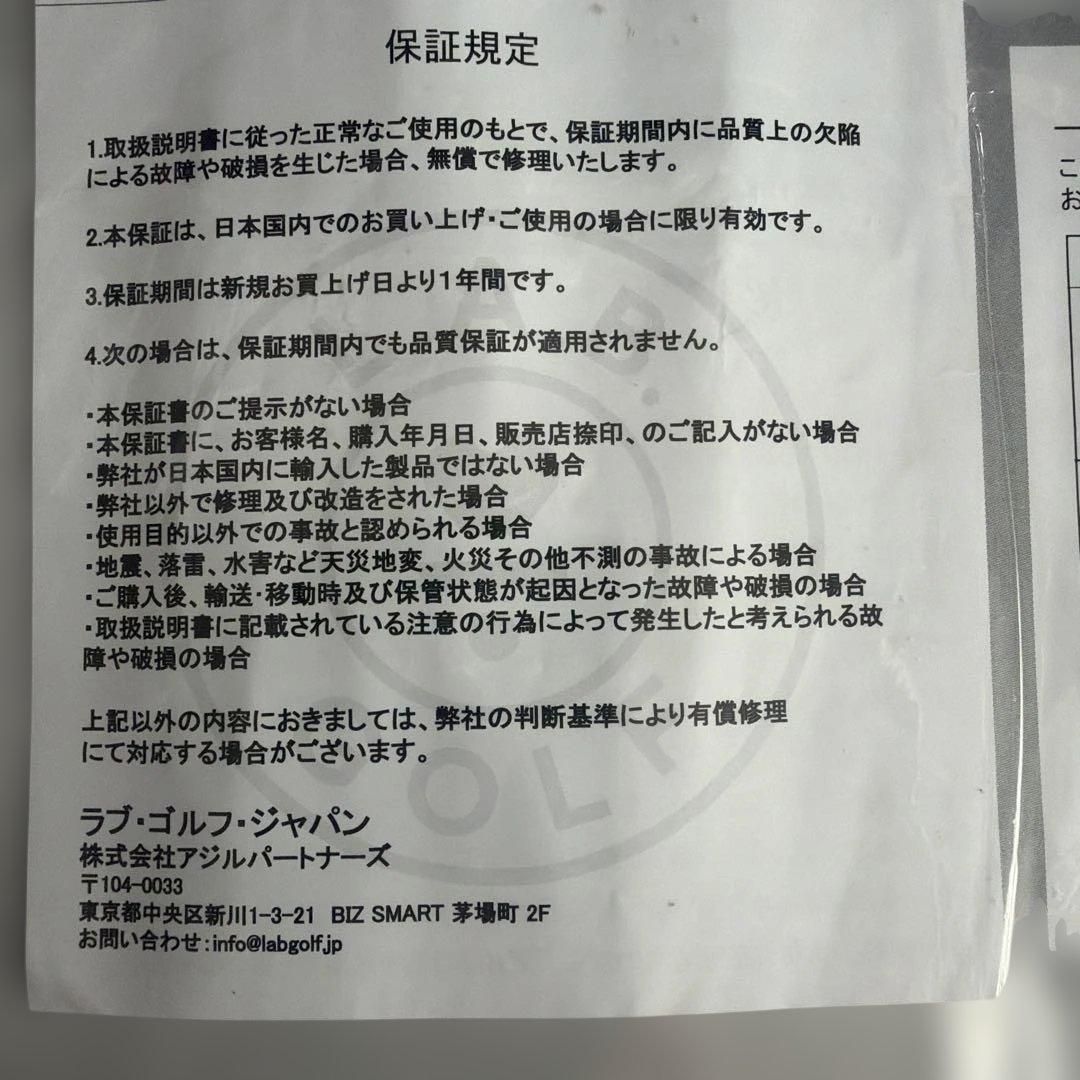 保証規定
1.取扱説明書に従った正常なご使用のもとで、保証期間内に品質上の欠陥
による故障や破損を生じた場合、無償で修理いたします。
2.本保証は、日本国内でのお買い上げ・ご使用の場合に限り有効です。
3.保証期間は新規お買上げ日より1年間です。
4.次の場合は、保証期間内でも品質保証が適用されません。
・本保証書のご提示がない場合
・本保証書に、お客様名、購入年月日、販売店捺印、のご記入がない場合
・弊社が日本国内に輸入した製品ではない場合
・弊社以外で修理及び改造をされた場合
・使用目的以外での事故と認められる場合
・地震、落雷、水害など天災地変、火災その他不測の事故による場合
・ご購入後、輸送・移動時及び保管状態が起因となった故障や破損の場合
・取扱説明書に記載されている注意の行為によって発生したと考えられる故
障や破損の場合
上記以外の内容におきましては、弊社の判断基準により有償修理
にて対応する場合がございます。
ラブ・ゴルフ・ジャパン
株式会社アジルパートナーズ
〒104-0033
東京都中央区新川1-3-21 BIZ SMART 茅場町 2F
お問い合わせ:info@labgolf.jp
L.A.B.
GOLF
こ
お